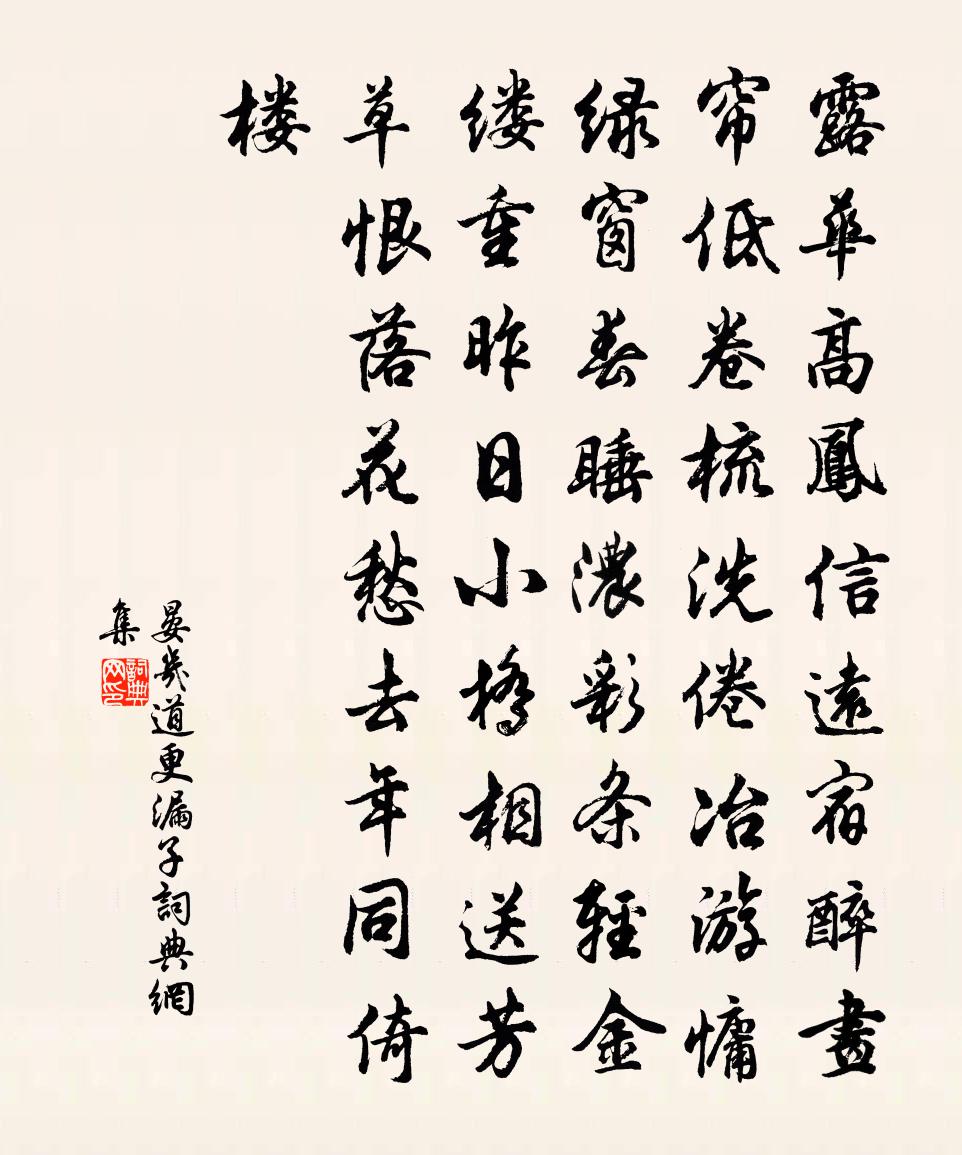 露華高鳳信遠宿醉畫
帘低卷梳洗倦冶游慵
绿窗春睡濃彩条輕金
缕重昨日小橋相送芳
草恨落花愁去年同倚
楼
晏幾道更漏子詞典網
集
詞典
网印